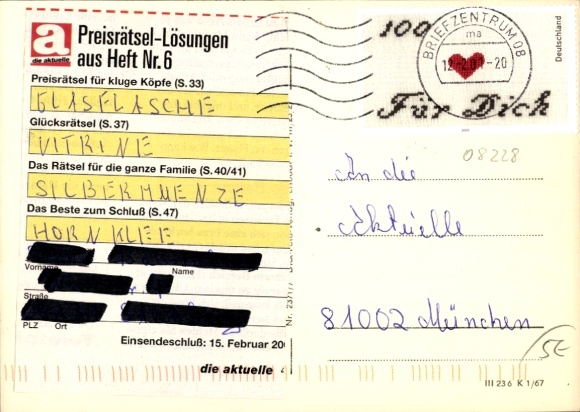 a
die aktuelle
Preisrätsel-Lösungen
aus Heft Nr. 6
Preisrätsel für kluge Köpfe (S. 33)
GLASFLASCHE
Glücksrätsel (S. 37)
VITRINE
Das Rätsel für die ganze Familie (S. 40/41)
SILBERMUENZE
Das Beste zum Schluß (S. 47)
HORNKLEE
Vorname Name
Straße
PLZ Ort
Einsendeschluß: 15. Februar 200
die aktuelle
100
Für Dich
Deutschland
BRIEFZENTRUM 08
ma
-20
08228
An die
Aktuelle
81002 München
5E
III 23 6 K 1/67